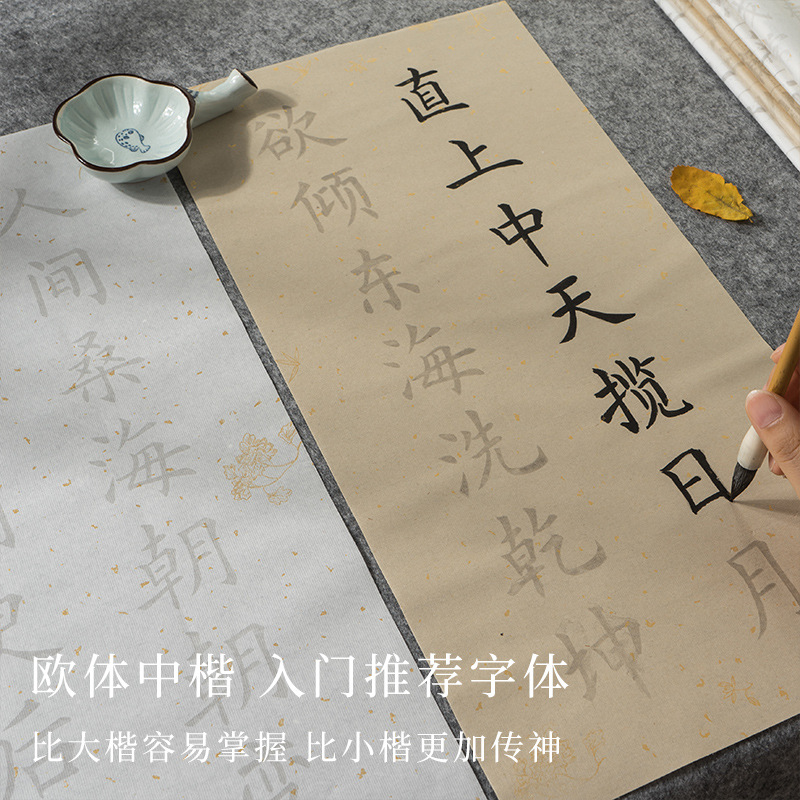 直上中天揽日月
欲倾东海洗乾坤
人间桑海朝朝变
更后
欧体中楷 入门推荐字体
比大楷容易掌握 比小楷更加传神